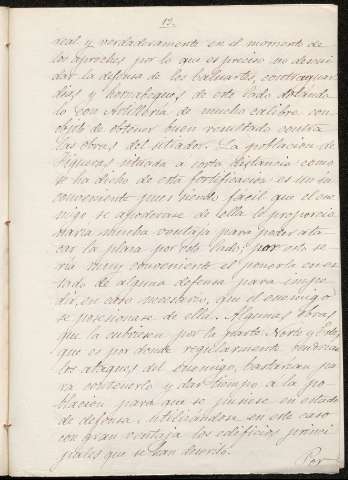 13.
real y verdaderamente en el momento de
los aproches por lo que es preciso no descui
dar la defensa de los baluartes, contraguar
dias y hornabeques de este lado dotando
lo con Artilleria de mucho calibre con
objeto de obtener buen resultado contra
las obras del sitiador. La poblacion de
Figueras situada a corta distancia como
se ha dicho de esta fortificacion es un in
conveniente pues siendo fácil que el ene
migo se apoderase de ella le proporcio
naria mucha ventaja para poder ata
car la plaza por este lado; por esto se
ría muy conveniente el ponerla en es
tado de alguna defensa para impe
dir, en caso necesario, que el enemigo
se posesionase de ella. Algunas obras
que la cubriesen por la parte Norte y Este,
que es por donde regularmente vendrian
los ataques del enemigo, bastarian pa
ra contenerlo y dar tiempo a la po
blacion para que se pusiese en estado
de defensa, utilizándose en este caso
con gran ventaja los edificios princi
pales que se han descrito.
Por